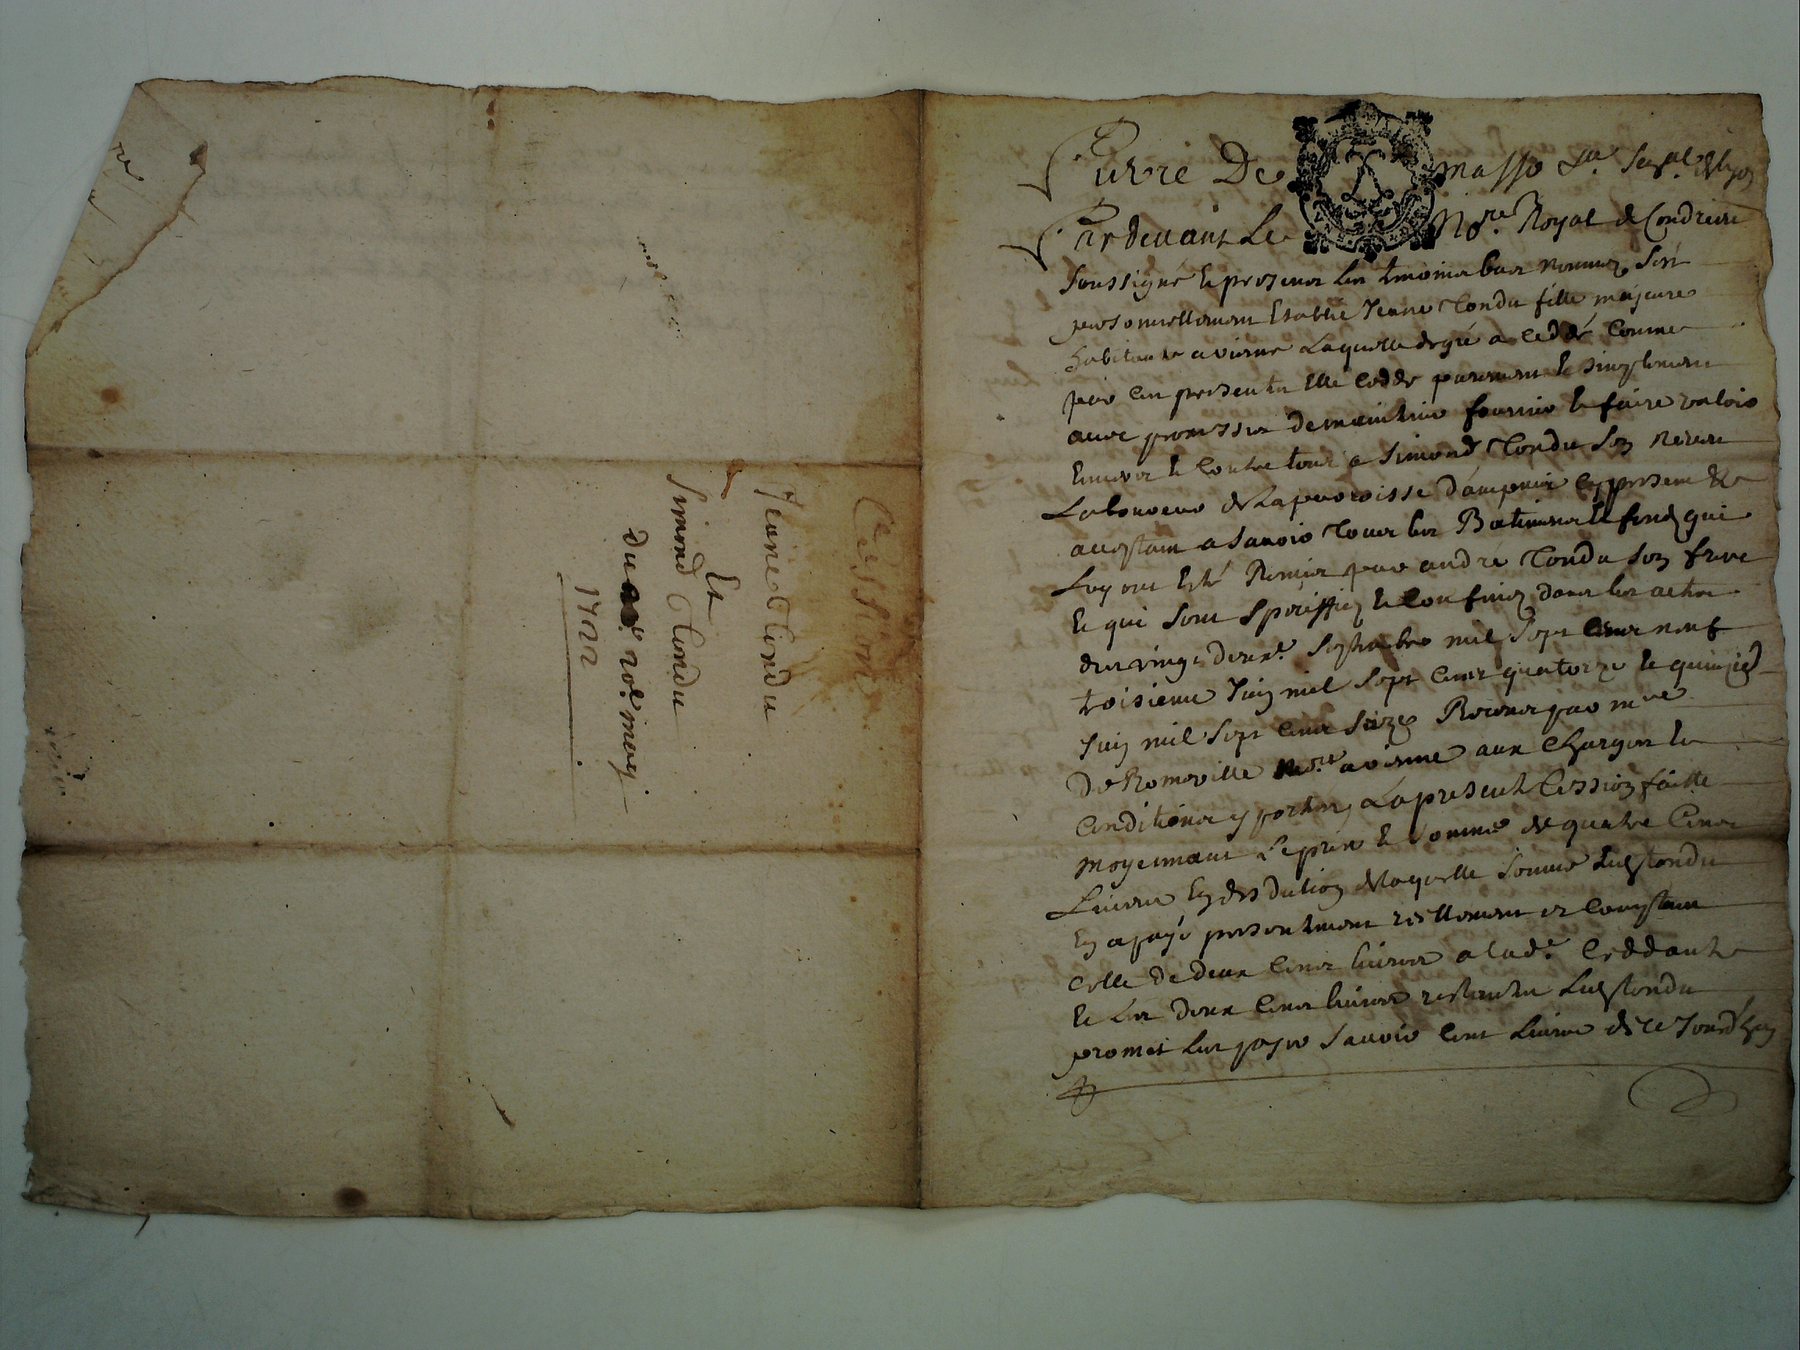 Cession
Jeanne Tondu
Et
Simond Tondu
du 20e may
1722
Pierre De masso Sen.al de Lyon
Pardevant Le No.re Royal de Condrieu
soussigné et presens les temoins bas nommez s'est
personnellement Establie Jeane Tondu fille majeure
habitante a vienne Laquelle de gré a ceddé comme
par ces presentes Elle cedde purement et simplement
avec promesse de maintenir fournir et faire valoir
Envers et contre tous a Simond Tondu son neveu
Laboureur de La parroisse d'ampuis cy present et
acceptant a savoir tous les Batiments et fondz qui
Luy ont Esté Remis par andré Tondu son frere
et qui sont speciffiez et confinez dans les actes
des vingt deuxe. septembre mil sept cens neuf
troisieme Juin mil sept cens quatorze et quinzie
Juin mil sept cens seize Receus par me
De Romeville no.re a vienne aux charges et
conditions y portees La presente Cession faitte
moyennant Le prix et somme de quatre Cens
Livres En deduction de laquelle somme Led. tondu
En a payé presentement reellement et comptant
celle de deux cens livres a lad.e Ceddante
et Les deux cens livres restantes Led. tondu
promet Les payer savoir cent Livres de ce Jourd'huy